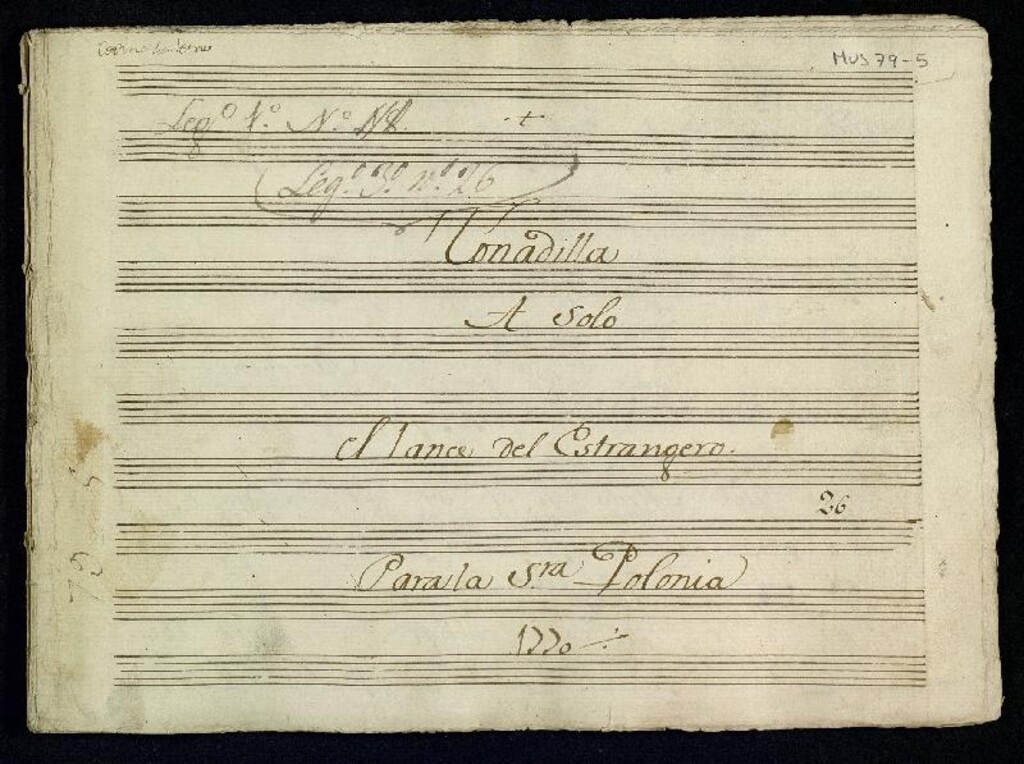 MUS 79-5
Leg.º 1.º N.º
Leg.º 3.º n.º 26
Tonadilla
A Solo
el lance del Estrangero.
26
Para la Sra Polonia
1770